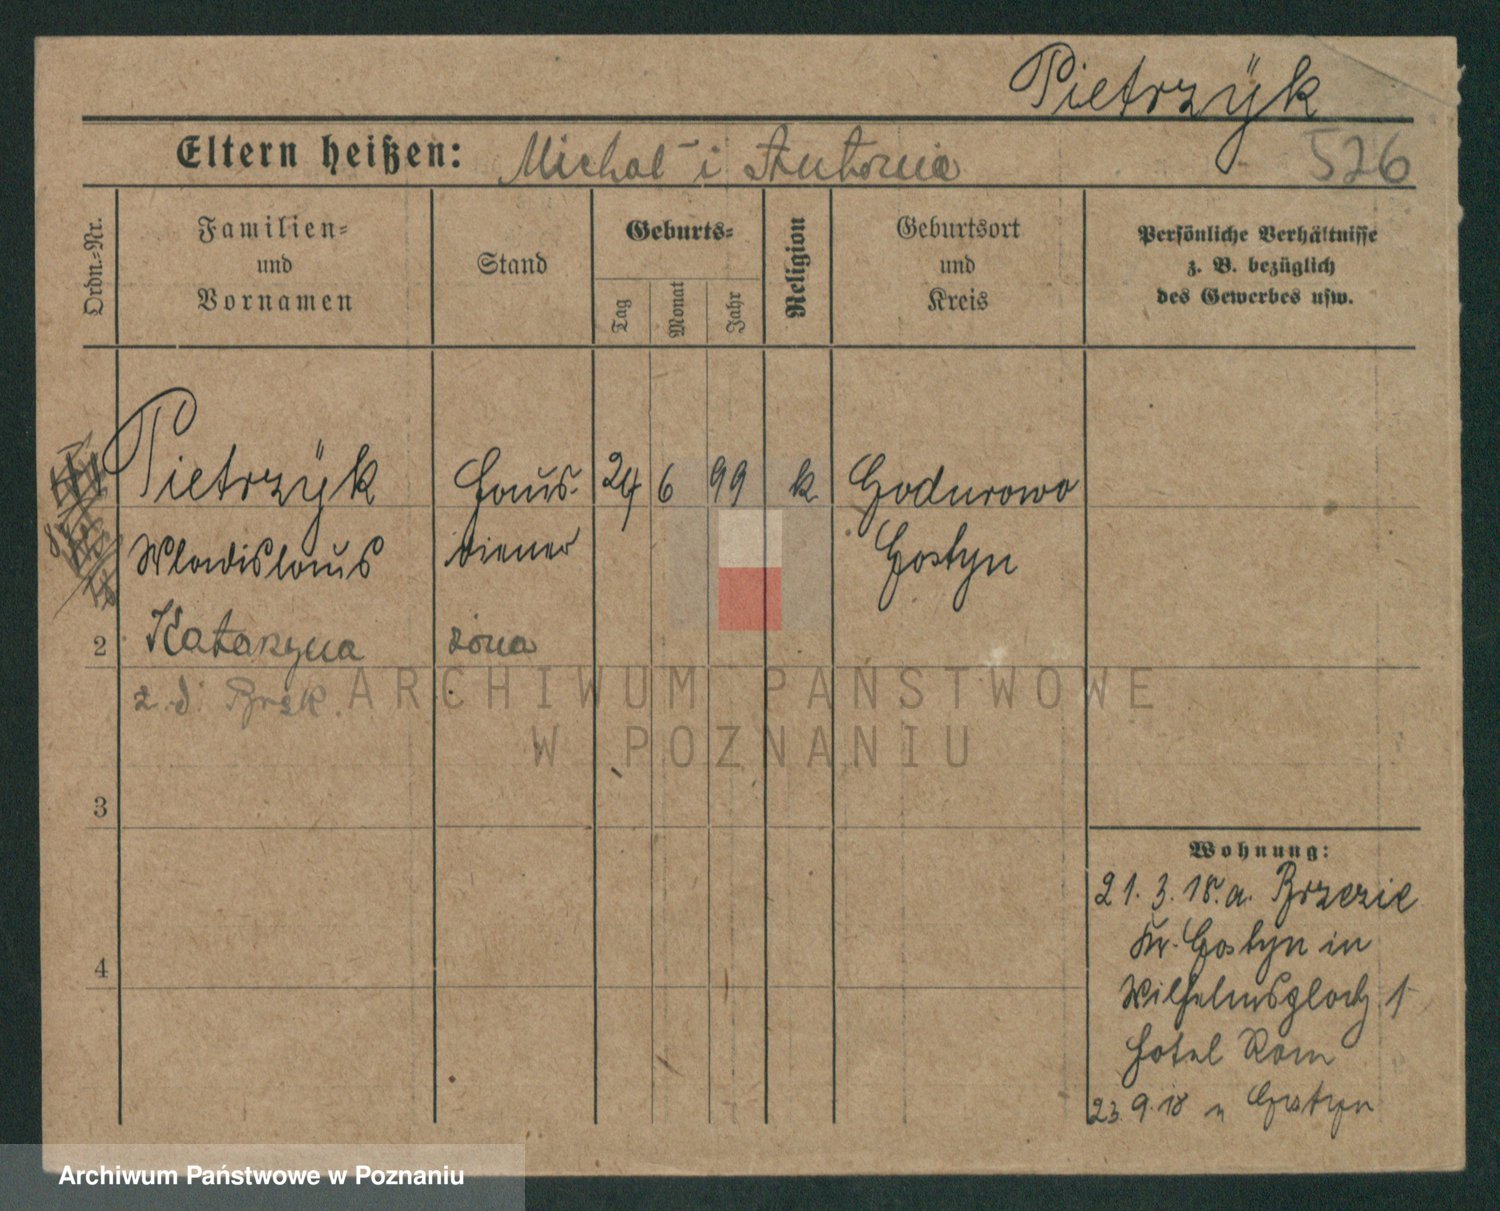 Pietrzÿk
Eltern heißen: Michał i Antonia 526
Ordn.-Nr.
Familien-
und
Vornamen
Stand
Geburts-
Tag
Monat
Jahr
Religion
Geburtsort
und
Kreis
Persönliche Verhältnisse
z. B. bezüglich
des Gewerbes usw.
Pietrzÿk Haus- 24 6 99 k Godurowo
Wladislaus diener Gostyn
2 Katarzyna żona
z d.
3
4
Wohnung:
21. 3. 18. a. Brzezie
Kr. Gostyn in
Wilhelmsplatz 1
Hotel Rom
23. 9. 18 n Gostyn
ARCHIWUM PAŃSTWOWE
W POZNANIU
Archiwum Państwowe w Poznaniu